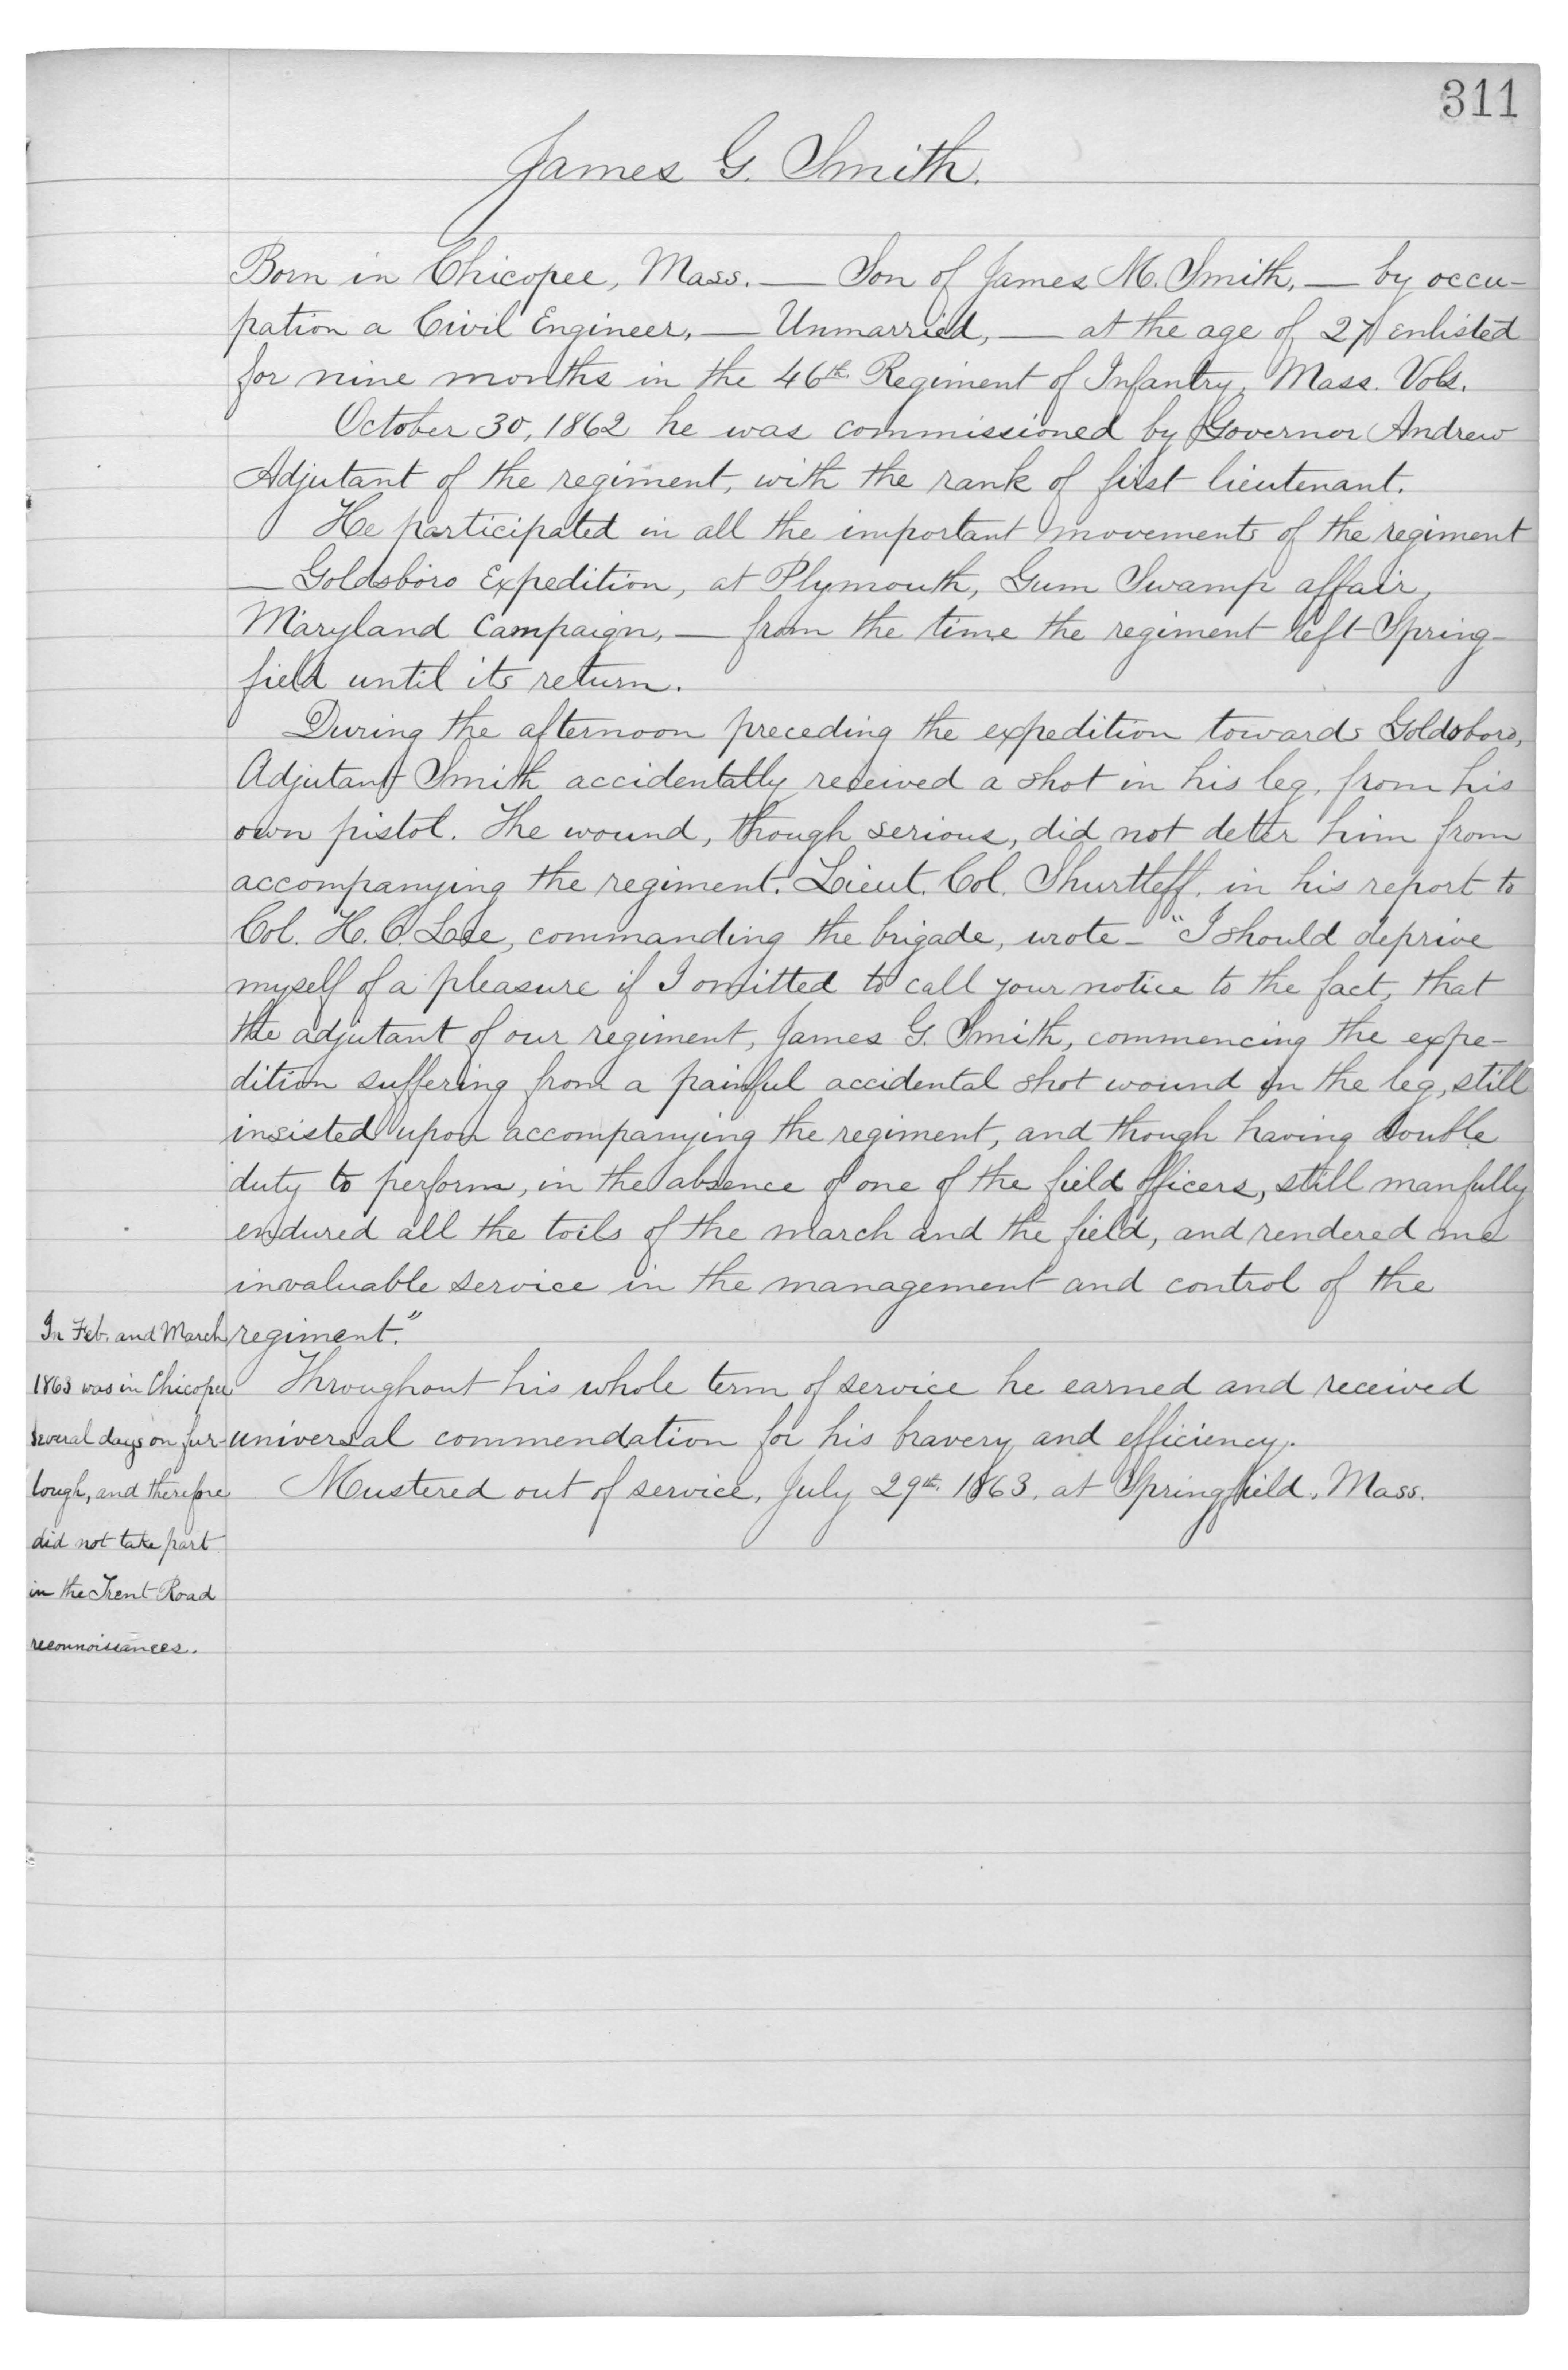 311
James G. Smith.
Born in Chicopee, Mass. — Son of James M. Smith, — by occu-
pation a Civil Engineer, — Unmarried, — at the age of 27 enlisted
for nine months in the 46th Regiment of Infantry, Mass. Vols.
October 30, 1862 he was commissioned by Governor Andrew
Adjutant of the regiment, with the rank of first lieutenant.
He participated in all the important movements of the regiment
— Goldsboro Expedition, at Plymouth, Gum Swamp affair,
Maryland Campaign, — from the time the regiment left Spring-
field until its return.
During the afternoon preceding the expedition towards Goldsboro,
Adjutant Smith accidentally received a shot in his leg, from his
own pistol. The wound, though serious, did not deter him from
accompanying the regiment. Lieut. Col. Shurtleff, in his report to
Col. H. C. Lee, commanding the brigade, wrote — "I should deprive
myself of a pleasure if I omitted to call your notice to the fact, that
the adjutant of our regiment, James G. Smith, commencing the expe-
dition suffering from a painful accidental shot wound in the leg, still
insisted upon accompanying the regiment, and though having double
duty to perform, in the absence of one of the field officers, still manfully
endured all the toils of the march and the field, and rendered me
invaluable service in the management and control of the
regiment."
Throughout his whole term of service he earned and received
universal commendation for his bravery and efficiency.
Mustered out of service, July 29th 1863, at Springfield, Mass.
In Feb. and March
1863 was in Chicopee
several days on fur-
lough, and therefore
did not take part
in the Trent Road
reconnoissances.